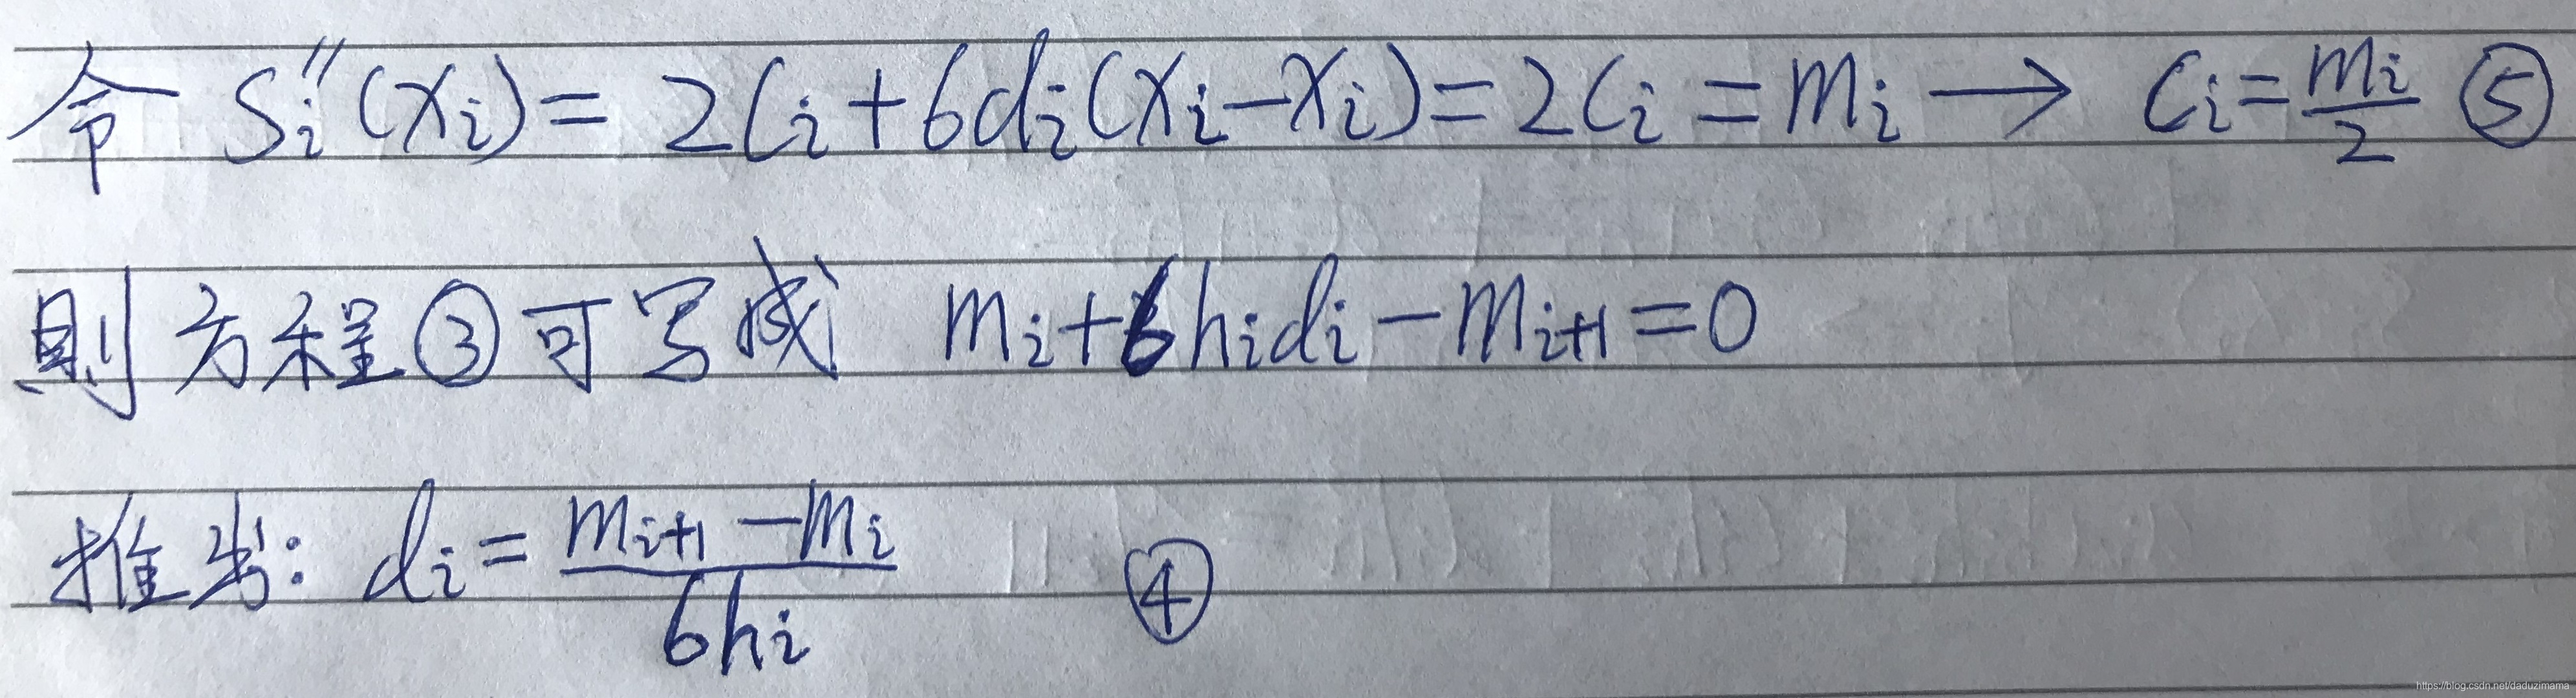 令 Sᵢ''(xᵢ) = 2Cᵢ + 6dᵢ(xᵢ - xᵢ) = 2Cᵢ = mᵢ → Cᵢ = mᵢ/2 ⑤
则方程③可写成 mᵢ + 6hᵢdᵢ - mᵢ₊₁ = 0
推出: dᵢ = (mᵢ₊₁ - mᵢ)/6hᵢ ④
https://blog.csdn.net/daduzimama